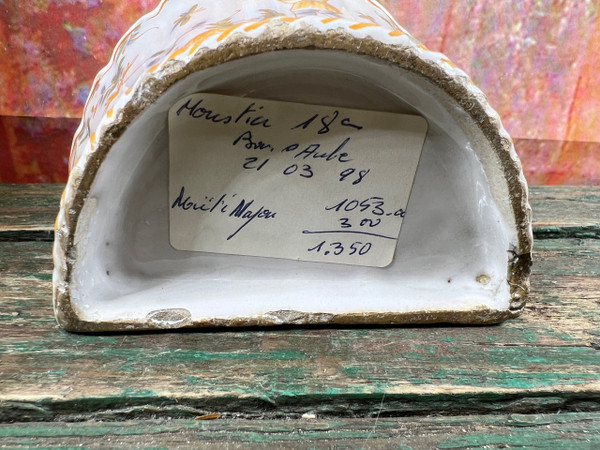 Moustier 18e
Bar s Aube
21 03 98
Moitié Majou 1053.00
300
1.350